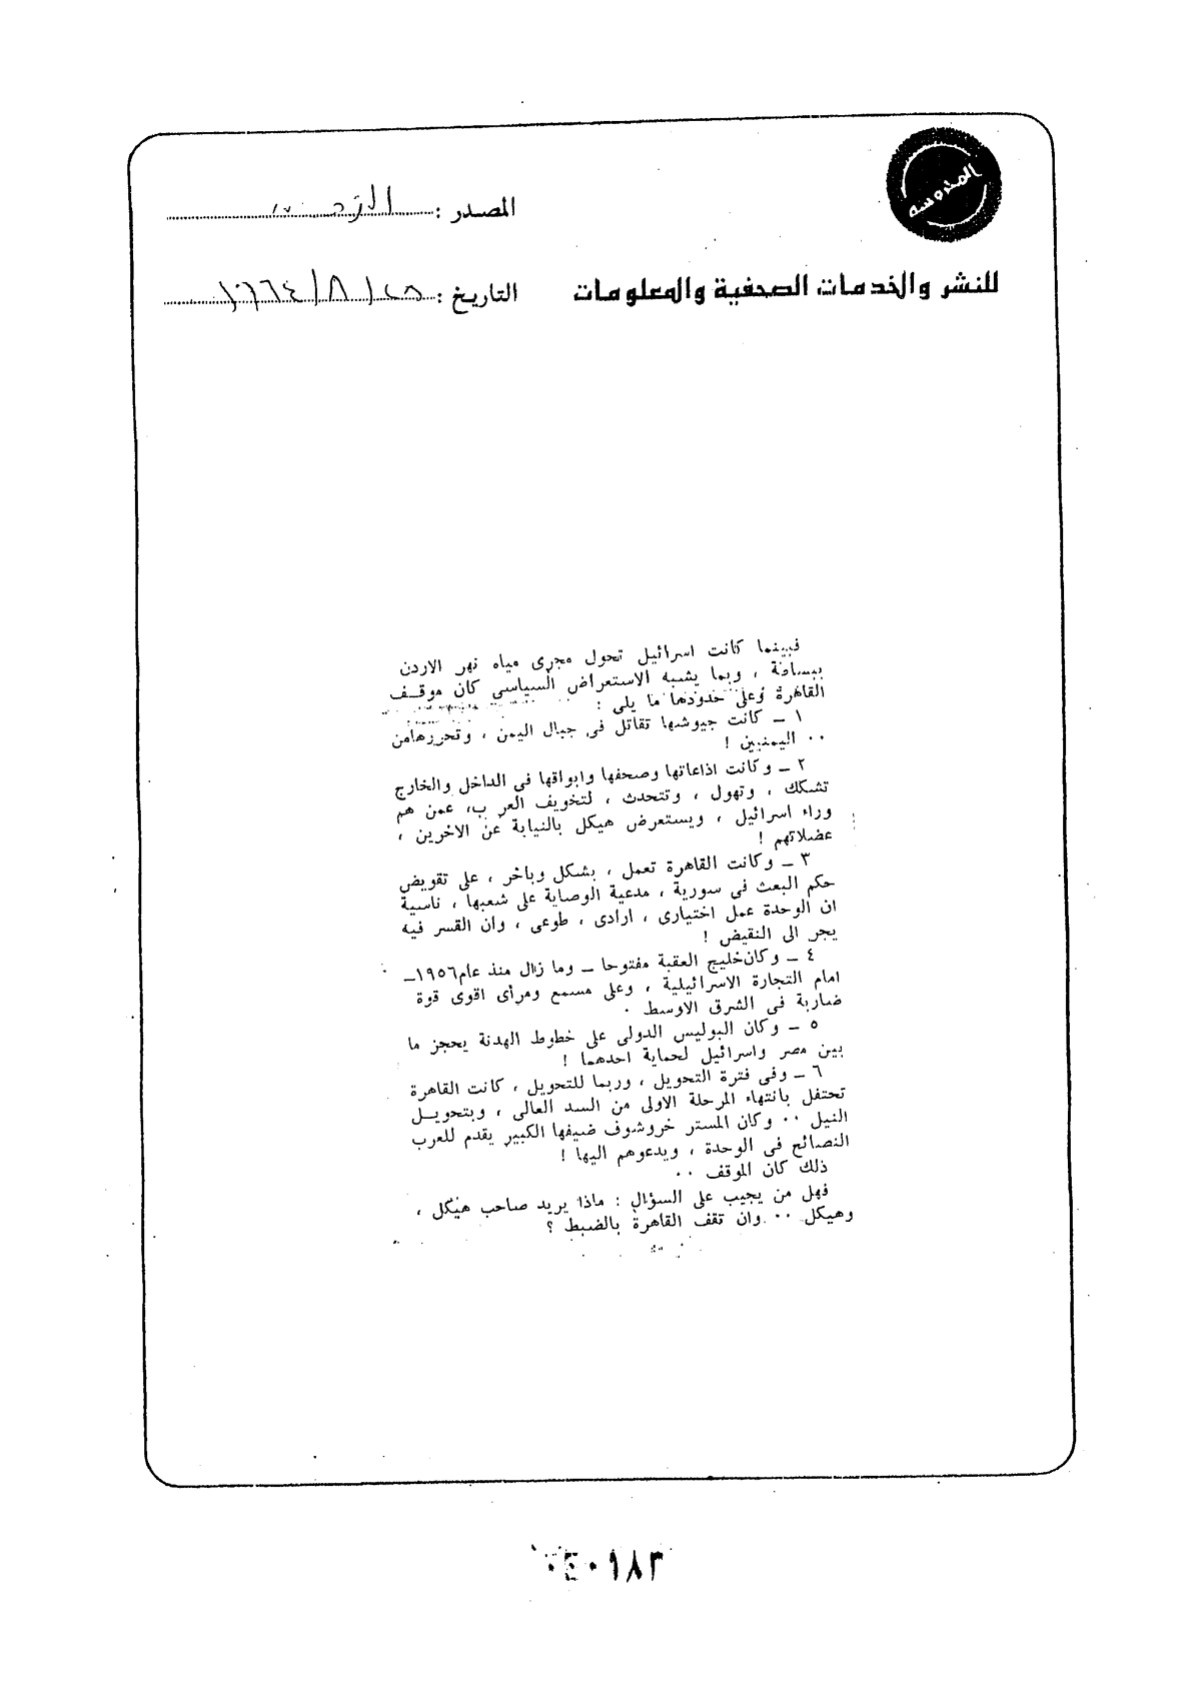 المحروسة
المصدر :
للنشر والخدمات الصحفية والمعلومات
التاريخ : ١٩٦٤/٨/٢٨
فبينما كانت اسرائيل تحول مجرى مياه نهر الاردن
ببساطة ، وبما يشبه الاستعراض السياسي كان موقف
القاهرة وعلى حدودها ما يلى :
١ ـ كانت جيوشها تقاتل فى جبال اليمن ، وتحررها من
٠٠ اليمنيين !
٢ ـ وكانت اذاعاتها وصحفها وابواقها فى الداخل والخارج
تشكك ، وتهول ، وتتحدث ، لتخويف العرب، عمن هم
وراء اسرائيل ، ويستعرض هيكل بالنيابة عن الاخرين ،
عضلاتهم !
٣ ـ وكانت القاهرة تعمل ، بشكل وباخر ، على تقويض
حكم البعث فى سورية ، مدعية الوصاية على شعبها ، ناسية
ان الوحدة عمل اختيارى ، ارادى ، طوعى ، وان القسر فيه
يجر الى النقيض !
٤ ـ وكان خليج العقبة مفتوحا ـ وما زال منذ عام ١٩٥٦ـ
امام التجارة الاسرائيلية ، وعلى مسمع ومرأى اقوى قوة
ضاربة فى الشرق الاوسط ٠
٥ ـ وكان البوليس الدولى على خطوط الهدنة يحجز ما
بين مصر واسرائيل لحماية احدهما !
٦ ـ وفى فترة التحويل ، وربما للتحويل ، كانت القاهرة
تحتفل بانتهاء المرحلة الاولى من السد العالى ، وبتحويل
النيل ٠٠ وكان المستر خروشوف ضيفها الكبير يقدم للعرب
النصائح فى الوحدة ، ويدعوهم اليها !
ذلك كان الموقف ٠٠
فهل من يجيب على السؤال : ماذا يريد صاحب هيكل ،
وهيكل ٠٠ وان تقف القاهرة بالضبط ؟
٠٤٠١٨٣